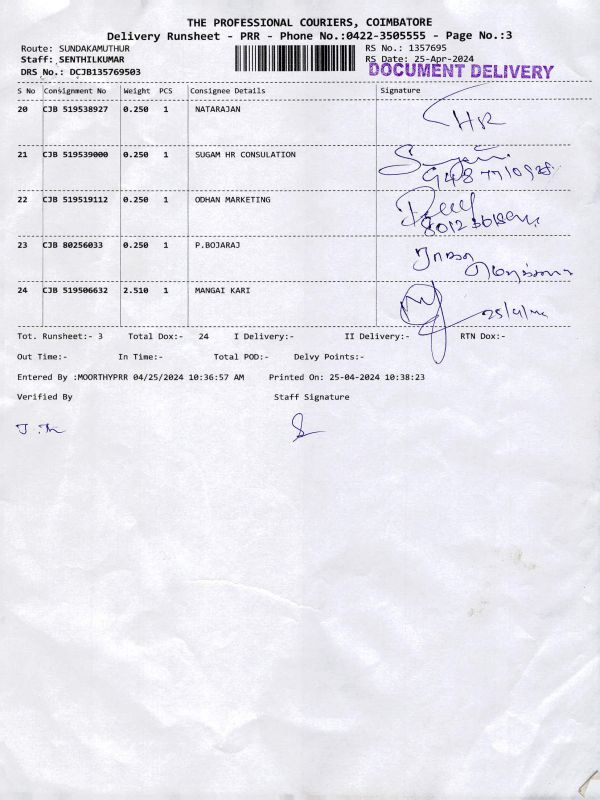 THE PROFESSIONAL COURIERS, COIMBATORE
Delivery Runsheet - PRR - Phone No.:0422-3505555 - Page No.:3
Route: SUNDAKAMUTHUR RS No.: 1357695
Staff: SENTHILKUMAR RS Date: 25-Apr-2024
DRS No.: DCJB135769503 DOCUMENT DELIVERY
S No Consignment No Weight PCS Consignee Details Signature
20 CJB 519538927 0.250 1 NATARAJAN
21 CJB 519539000 0.250 1 SUGAM HR CONSULATION
22 CJB 519519112 0.250 1 ODHAN MARKETING
23 CJB 80256033 0.250 1 P.BOJARAJ
24 CJB 519506632 2.510 1 MANGAI KARI
Tot. Runsheet:- 3 Total Dox:- 24 I Delivery:- II Delivery:- RTN Dox:-
Out Time:- In Time:- Total POD:- Delvy Points:-
Entered By :MOORTHYPRR 04/25/2024 10:36:57 AM Printed On: 25-04-2024 10:38:23
Verified By Staff Signature